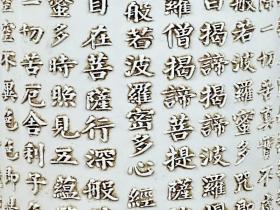 苦真實不
般若波羅蜜多咒
曰揭諦揭諦波羅
羅僧揭諦菩提薩
般若波羅蜜多心經
自在菩薩行深般
蜜多時照見五蘊
一切苦厄舍利子
不異色色即